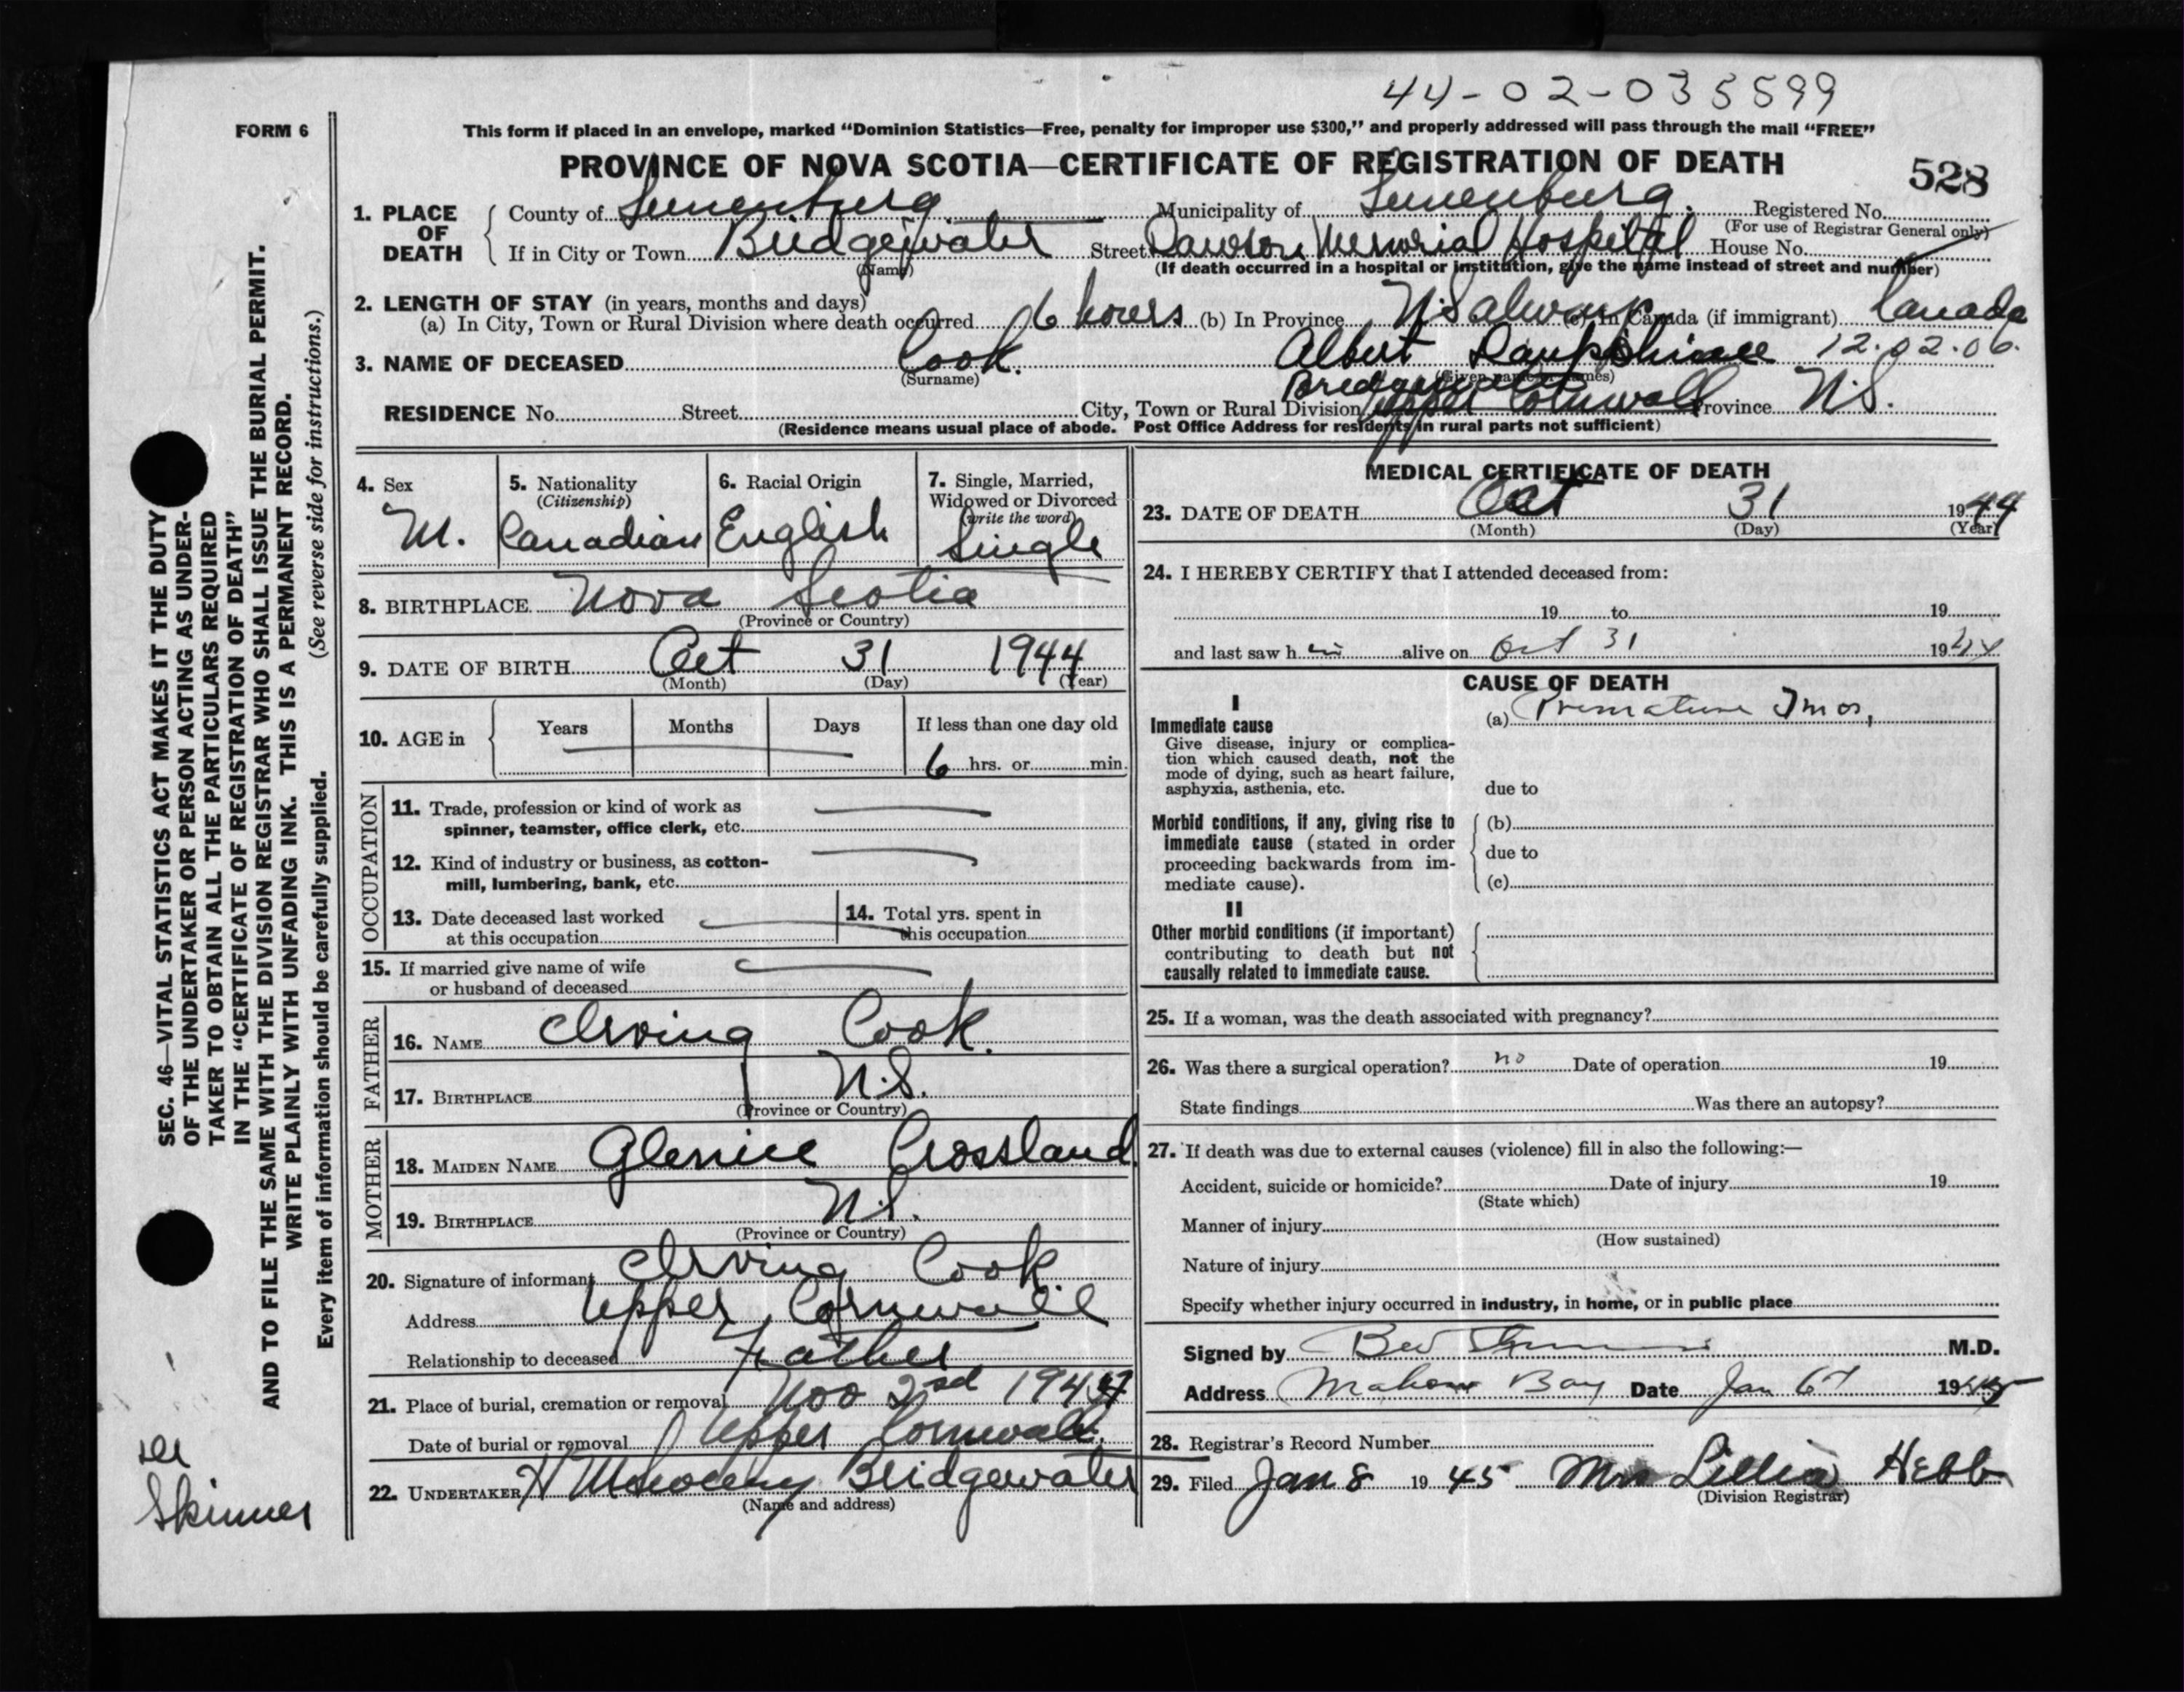 44-02-035599
FORM 6
This form if placed in an envelope, marked "Dominion Statistics—Free, penalty for improper use $300," and properly addressed will pass through the mail "FREE"
PROVINCE OF NOVA SCOTIA—CERTIFICATE OF REGISTRATION OF DEATH
528
1. PLACE OF DEATH
County of Lunenburg Municipality of Lunenburg. Registered No.
(For use of Registrar General only)
If in City or Town Bridgewater Street Dawson Memorial Hospital House No.
(Name) (If death occurred in a hospital or institution, give the name instead of street and number)
2. LENGTH OF STAY (in years, months and days)
(a) In City, Town or Rural Division where death occurred 6 hours (b) In Province N.S always (c) In Canada (if immigrant) Canada
3. NAME OF DECEASED Cook. Albert 12.02.06.
(Surname) (Given name or names)
Bridgewater
RESIDENCE No. Street City, Town or Rural Division Upper Cornwall Province N.S.
(Residence means usual place of abode. Post Office Address for residents in rural parts not sufficient)
4. Sex
M.
5. Nationality
(Citizenship)
Canadian
6. Racial Origin
English
7. Single, Married,
Widowed or Divorced
(write the word)
Single
8. BIRTHPLACE Nova Scotia
(Province or Country)
9. DATE OF BIRTH Oct 31 1944
(Month) (Day) (Year)
10. AGE in Years Months Days If less than one day old
6 hrs. or min.
OCCUPATION
11. Trade, profession or kind of work as
spinner, teamster, office clerk, etc.
12. Kind of industry or business, as cotton-
mill, lumbering, bank, etc.
13. Date deceased last worked
at this occupation
14. Total yrs. spent in
this occupation
15. If married give name of wife
or husband of deceased
FATHER
16. NAME Irving Cook.
17. BIRTHPLACE N.S.
(Province or Country)
MOTHER
18. MAIDEN NAME Glenice Crossland
19. BIRTHPLACE N.S.
(Province or Country)
20. Signature of informant Irving Cook.
Address Upper Cornwall
Relationship to deceased Father
21. Place of burial, cremation or removal Nov 2nd 194
Date of burial or removal Upper Cornwall.
22. UNDERTAKER Bridgewater
(Name and address)
MEDICAL CERTIFICATE OF DEATH
23. DATE OF DEATH Oct 31 1944
(Month) (Day) (Year)
24. I HEREBY CERTIFY that I attended deceased from:
19 to 19
and last saw h im alive on Oct 31 1944
CAUSE OF DEATH
I
Immediate cause
Give disease, injury or complica-
tion which caused death, not the
mode of dying, such as heart failure,
asphyxia, asthenia, etc.
(a) Premature 7 mos,
due to
Morbid conditions, if any, giving rise to
immediate cause (stated in order
proceeding backwards from im-
mediate cause).
(b)
due to
(c)
II
Other morbid conditions (if important)
contributing to death but not
causally related to immediate cause.
25. If a woman, was the death associated with pregnancy?
26. Was there a surgical operation? no Date of operation 19
State findings Was there an autopsy?
27. If death was due to external causes (violence) fill in also the following:—
Accident, suicide or homicide? Date of injury 19
(State which)
Manner of injury
(How sustained)
Nature of injury
Specify whether injury occurred in industry, in home, or in public place
Signed by M.D.
Address Mahone Bay Date Jan 6th 1945
28. Registrar's Record Number
29. Filed Jan 8 1945 Mrs Lillia Hebb
(Division Registrar)
SEC. 46—VITAL STATISTICS ACT MAKES IT THE DUTY
OF THE UNDERTAKER OR PERSON ACTING AS UNDER-
TAKER TO OBTAIN ALL THE PARTICULARS REQUIRED
IN THE "CERTIFICATE OF REGISTRATION OF DEATH"
AND TO FILE THE SAME WITH THE DIVISION REGISTRAR WHO SHALL ISSUE THE BURIAL PERMIT.
WRITE PLAINLY WITH UNFADING INK. THIS IS A PERMANENT RECORD.
Every item of information should be carefully supplied. (See reverse side for instructions.)
Skinner